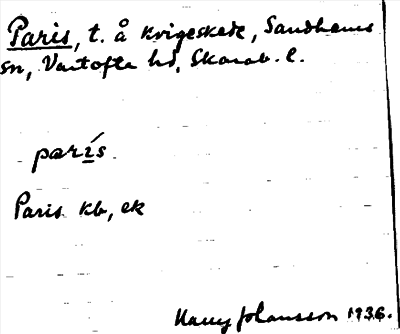 Paris, t. å Kvigeskede, Sandhems
sn, Vartofta hd, Skarab. l.
parís.
Paris kb, ek
Harry Johansson 1936.